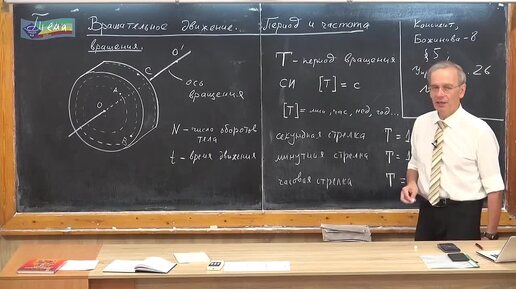 Тема Вращательное движение... Период и частота
вращения.
O'
C
A
O
B
ось
вращения
N - число оборотов
тела
t - время движения
T - период вращения
СИ [T] = с
[T] = мин, час, нед, год...
секундная стрелка T = 1
минутная стрелка T = 1
часовая стрелка T =
Конспект,
Божинова - 8
§ 5
26